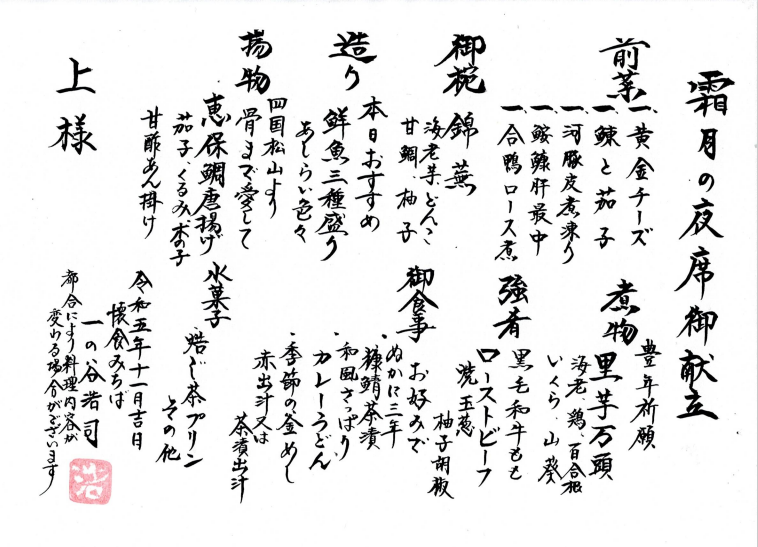 霜月の夜席御献立
前菜
一、黄金チーズ
一、鰊と茄子
一、河豚皮煮凍り
一、鮟鱇肝最中
一、合鴨ロース煮
御椀
錦蕪
海老芋どんこ
甘鯛、柚子
造り
本日おすすめ
鮮魚三種盛り
あしらい色々
揚物
四国松山より
骨まで愛して
恵保鯛唐揚げ
茄子、くるみ、木の子
甘酢あん掛け
上様
煮物
豊年祈願
里芋万頭
海老、鶏、百合根
いくら、山葵
強肴
黒毛和牛もも
ローストビーフ
焼玉葱
柚子胡椒
御食事
お好みで
ぬかに三年
・糠鯖茶漬
・和風さっぱり
カレーうどん
・季節の釜めし
赤出汁又は
茶漬出汁
水菓子
・焙じ茶プリン
その他
令和五年十一月吉日
懐食みちば
一の谷浩司
都合により料理内容が
変わる場合がございます
浩